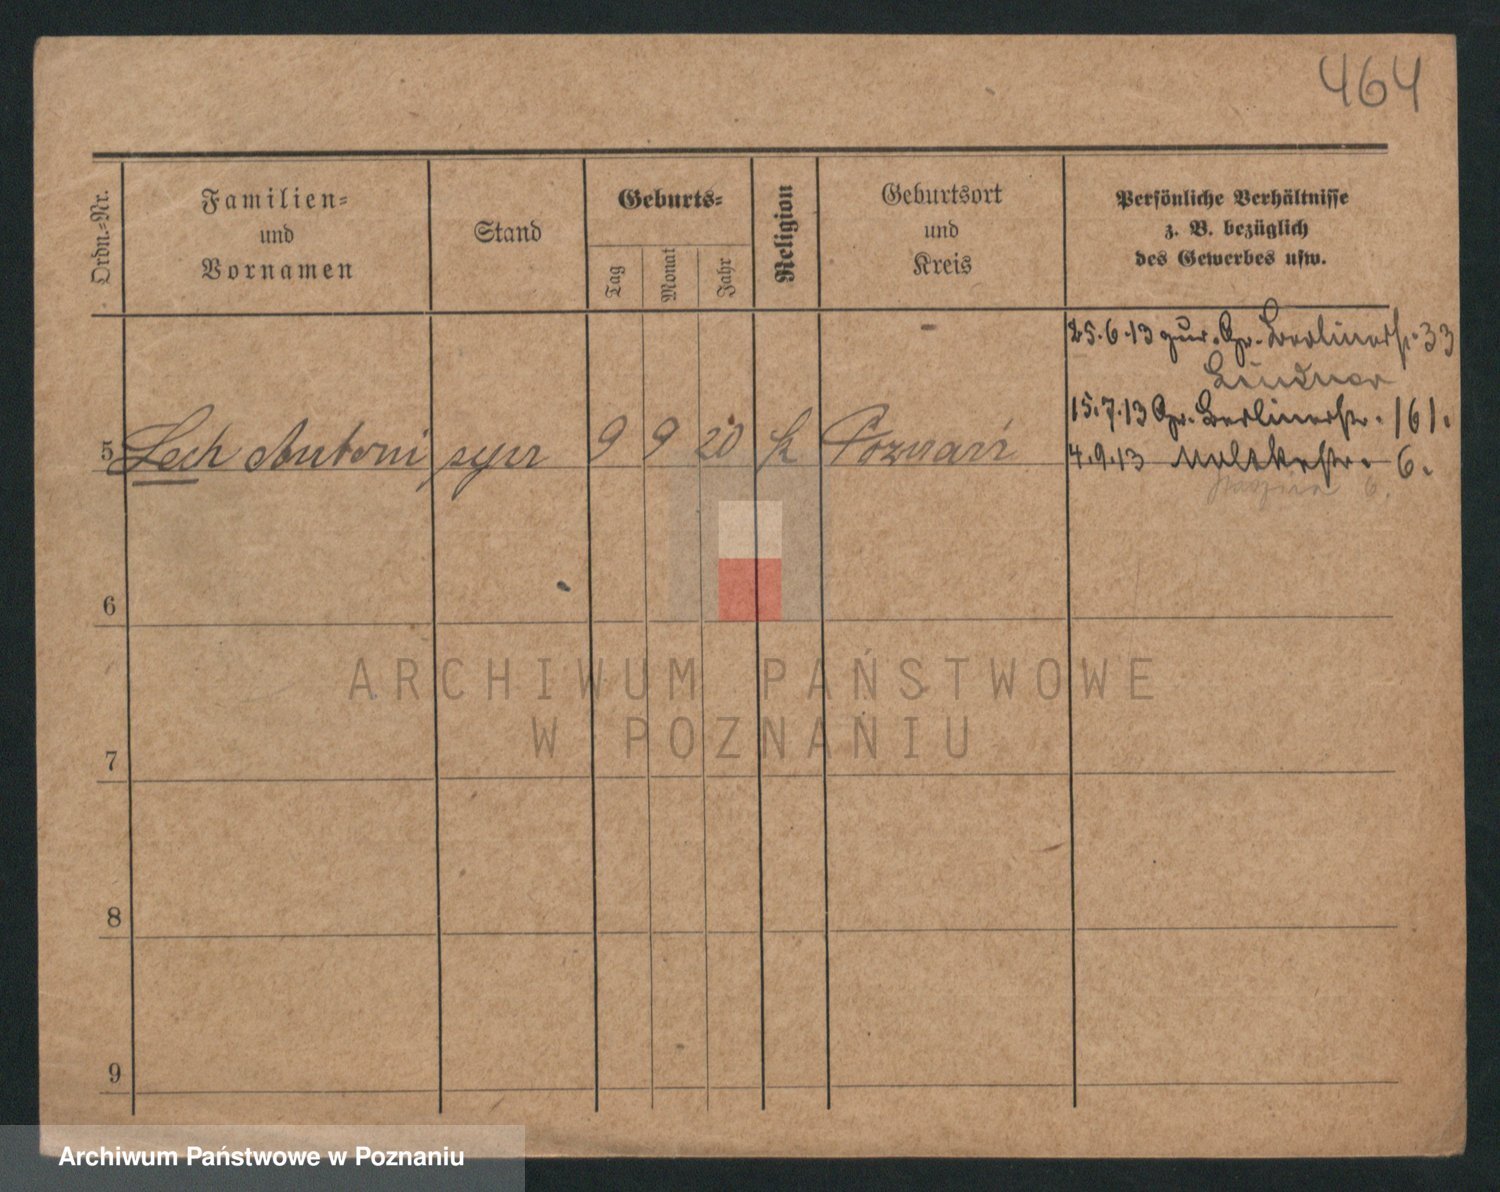 464
Ordn.-Nr.
Familien-
und
Vornamen
Stand
Geburts-
Tag
Monat
Jahr
Religion
Geburtsort
und
Kreis
Persönliche Verhältnisse
z. B. bezüglich
des Gewerbes usw.
25.6.13 zur. Gr. Berlinerstr. 33
Lindner
15.7.13 Gr. Berlinerstr. 161.
4.9.13 Moltkestr. 6.
6.
5 Lech Antoni syn 9 9 20 k Poznań
6
7
8
9
ARCHIWUM PAŃSTWOWE
W POZNANIU
Archiwum Państwowe w Poznaniu